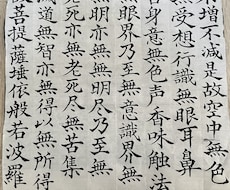 増不減是故空中無色
無受想行識無眼耳鼻
舌身意無色声香味触法
無眼界乃至無意識界無
無明亦無無明尽乃至無
老死亦無老死尽無苦集
滅道無智亦無得以無所得
故菩提薩埵依般若波羅